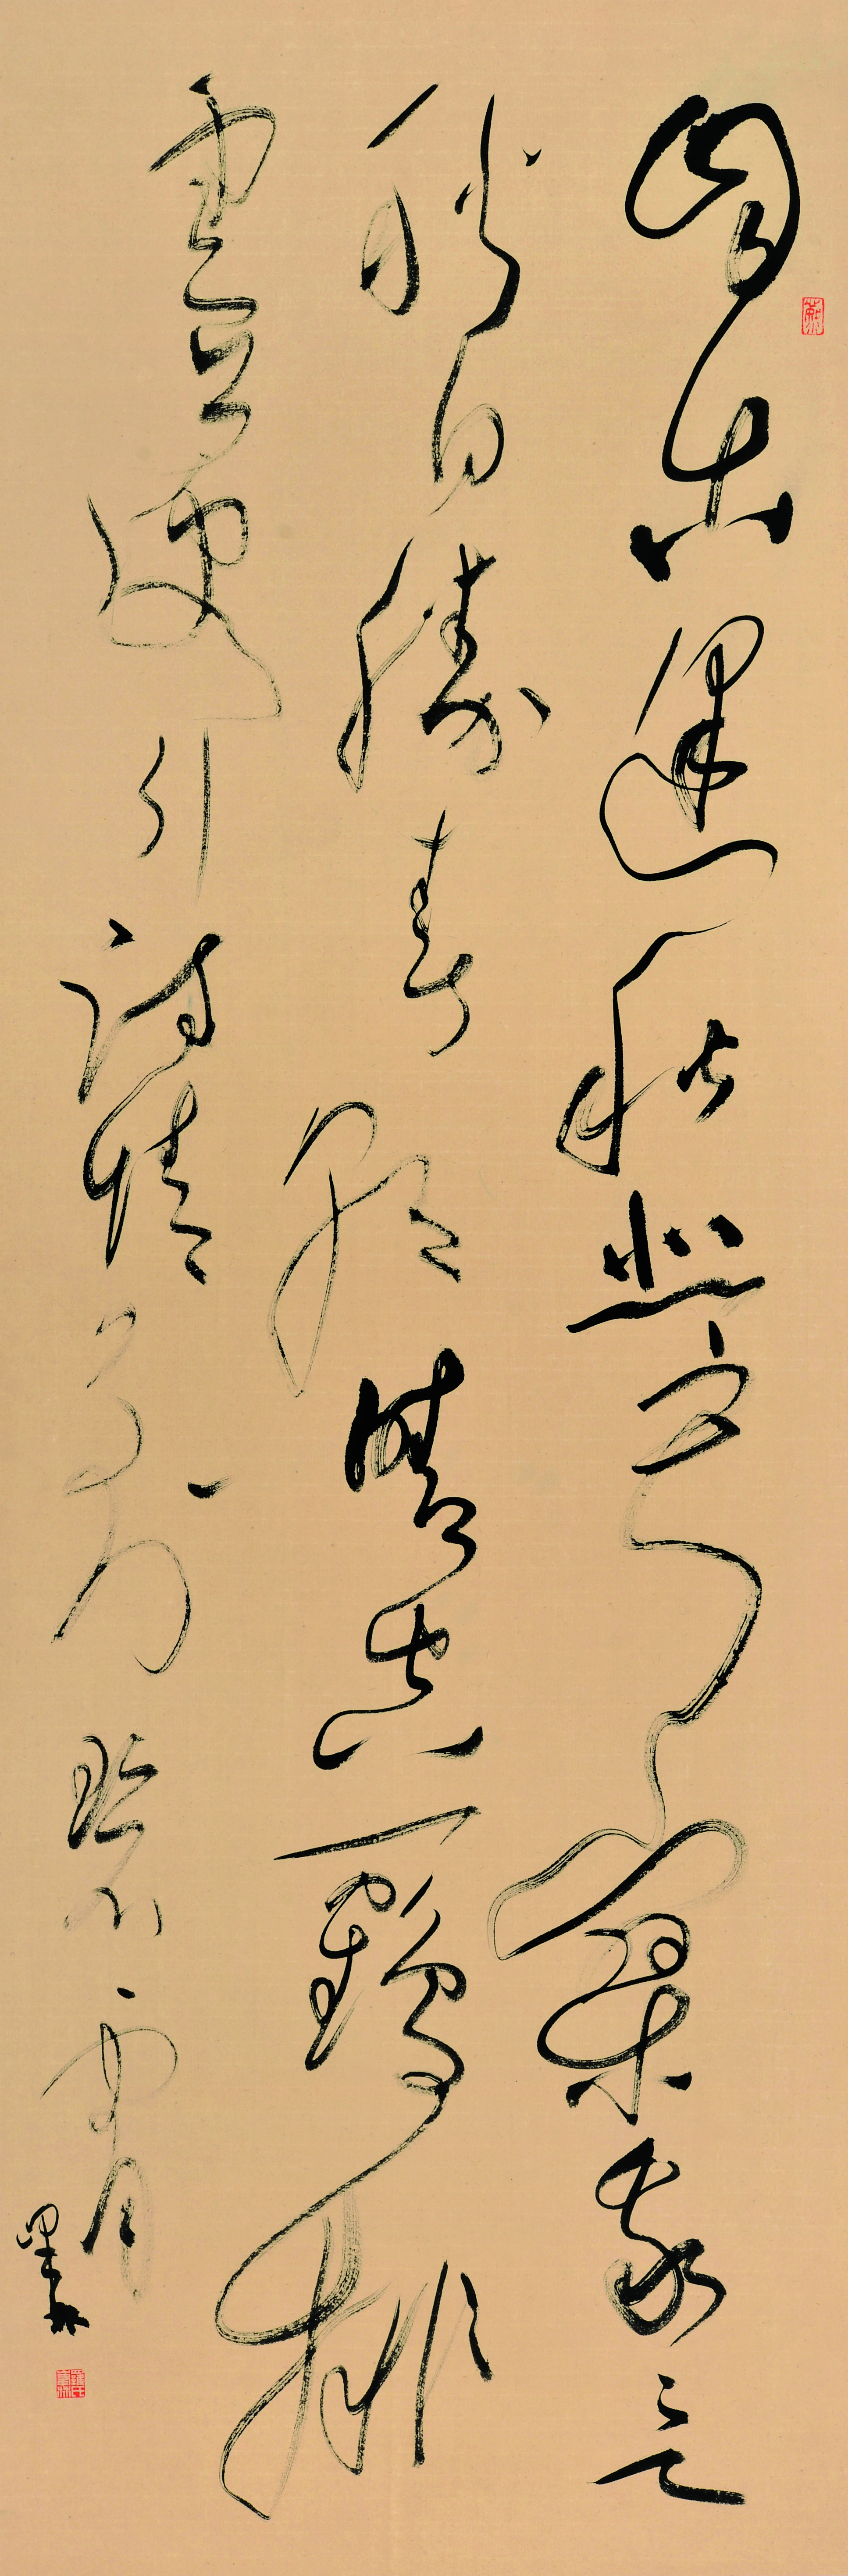 自古逢秋悲寂寥我言
秋日勝春朝晴空一鶴排
雲上便引詩情到碧霄
墨林